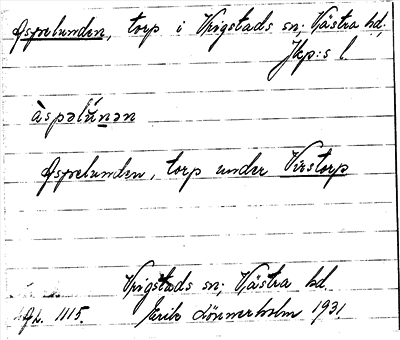 Aspelunden, torp i Vrigstads sn; Västra hd.
Jkp:s l.
àspəlúnən
Aspelunden, torp under Virstorp
Vrigstads sn; Västra hd.
1115. Erik Lönnerholm 1931